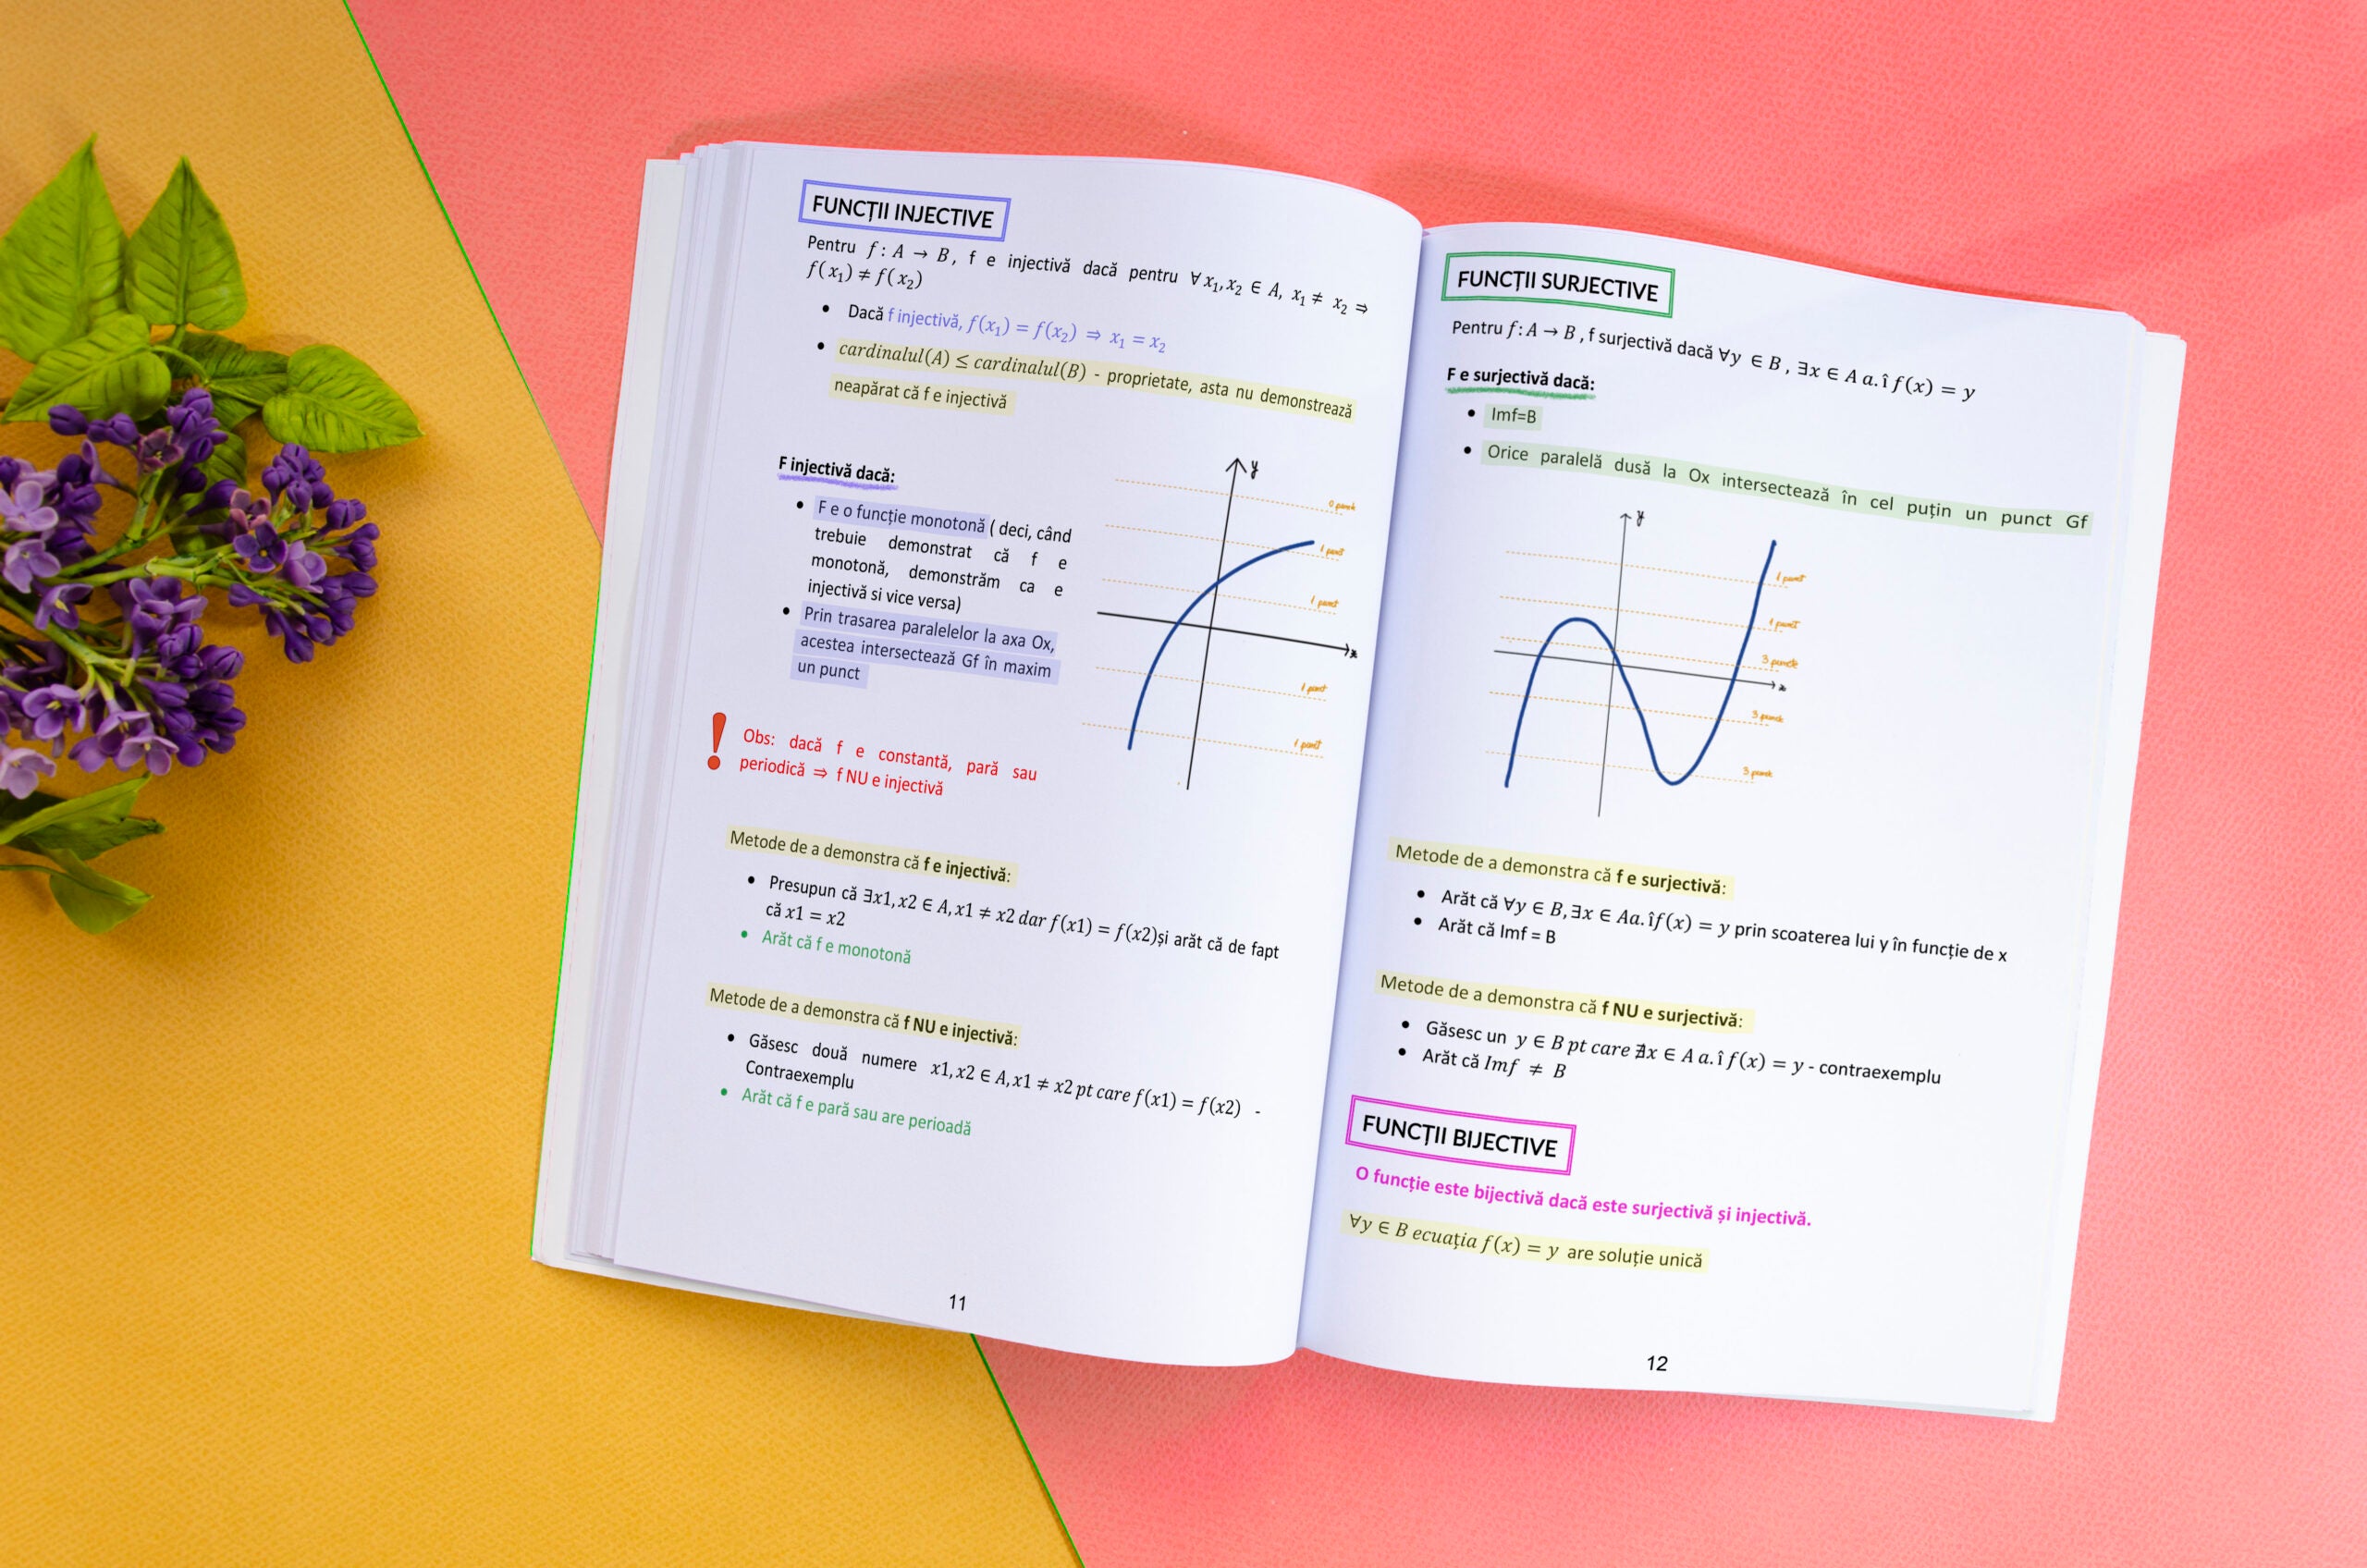 FUNCȚII INJECTIVE
Pentru f: A → B, f e injectivă dacă pentru ∀ x₁, x₂ ∈ A, x₁ ≠ x₂ ⇒
f(x₁) ≠ f(x₂)
• Dacă f injectivă, f(x₁) = f(x₂) ⇒ x₁ = x₂
• cardinalul(A) ≤ cardinalul(B) - proprietate, asta nu demonstrează
neapărat că f e injectivă
F injectivă dacă:
• F e o funcție monotonă ( deci, când
trebuie demonstrat că f e
monotonă, demonstrăm ca e
injectivă si vice versa)
• Prin trasarea paralelelor la axa Ox,
acestea intersectează Gf în maxim
un punct
y
0 puncte
1 punct
1 punct
x
1 punct
1 punct
Obs: dacă f e constantă, pară sau
periodică ⇒ f NU e injectivă
Metode de a demonstra că f e injectivă:
• Presupun că ∃x1, x2 ∈ A, x1 ≠ x2 dar f(x1) = f(x2)și arăt că de fapt
că x1 = x2
• Arăt că f e monotonă
Metode de a demonstra că f NU e injectivă:
• Găsesc două numere x1, x2 ∈ A, x1 ≠ x2 pt care f(x1) = f(x2) -
Contraexemplu
• Arăt că f e pară sau are perioadă
11
FUNCȚII SURJECTIVE
Pentru f: A → B , f surjectivă dacă ∀y ∈ B , ∃x ∈ A a. î f(x) = y
F e surjectivă dacă:
• Imf=B
• Orice paralelă dusă la Ox intersectează în cel puțin un punct Gf
y
1 punct
1 punct
3 puncte
x
3 puncte
3 puncte
Metode de a demonstra că f e surjectivă:
• Arăt că ∀y ∈ B, ∃x ∈ Aa. îf(x) = y prin scoaterea lui y în funcție de x
• Arăt că Imf = B
Metode de a demonstra că f NU e surjectivă:
• Găsesc un y ∈ B pt care ∄x ∈ A a. î f(x) = y - contraexemplu
• Arăt că Imf ≠ B
FUNCȚII BIJECTIVE
O funcție este bijectivă dacă este surjectivă și injectivă.
∀y ∈ B ecuația f(x) = y are soluție unică
12